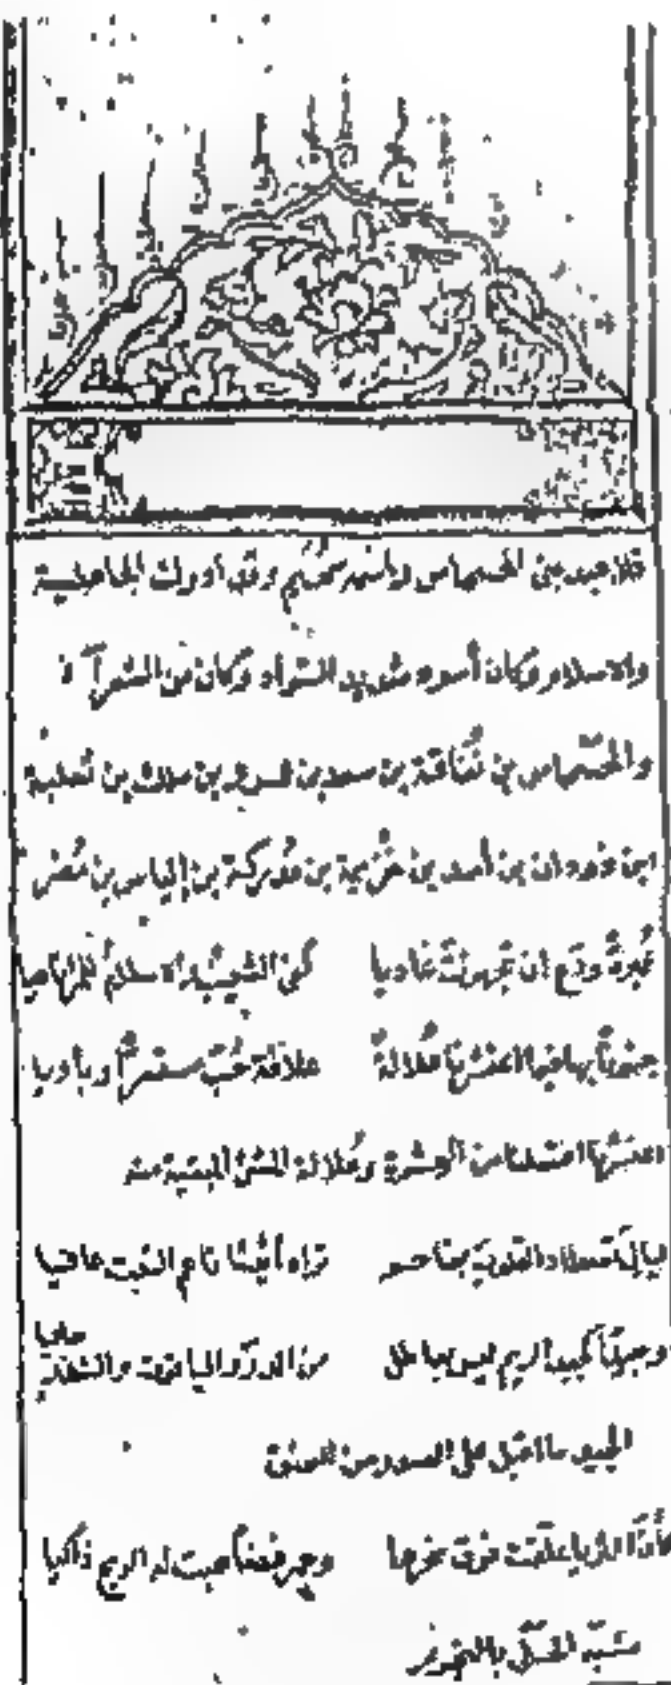 قال عبد بنى الحسحاس واسمه سُحَيْم وقد أدرك الجاهلية
والاسلام وكان أسود شديد السّواد وكان من الشعرآء
والحَسْحاس بن نُفَاثة بن سعد بن عمرو بن مالك بن ثعلبة
ابن دودان بن أسد بن خُزيمة بن مُدركة بن إلياس بن مُضَر
عُميرةَ ودّع ان تجهزتَ غاديا كفى الشيبُ والاسلامُ للمرء ناهيا
جنوناً بها فيما اعتشرنا عُلالةً علاقةَ حُبّ مستسرًّا وباديا
اعتشرنا افتعلنا من العشرة وعُلالة الشئ البقية منه
ليالِىَ تصطاد القلوبَ بفاحم تراه أثيثًا ناعم النبت عافيا
وجيدٍ كجيد الريم ليس بعاطل من الدرّ والياقوت والشذر حاليا
الجيد ما اقبل على الصدر من العنق
كأنّ الثريا علّقت فوق نحرها وجمر غضاً هبت له الريح ذاكيا
شبّه الحَلْى بالنجوم